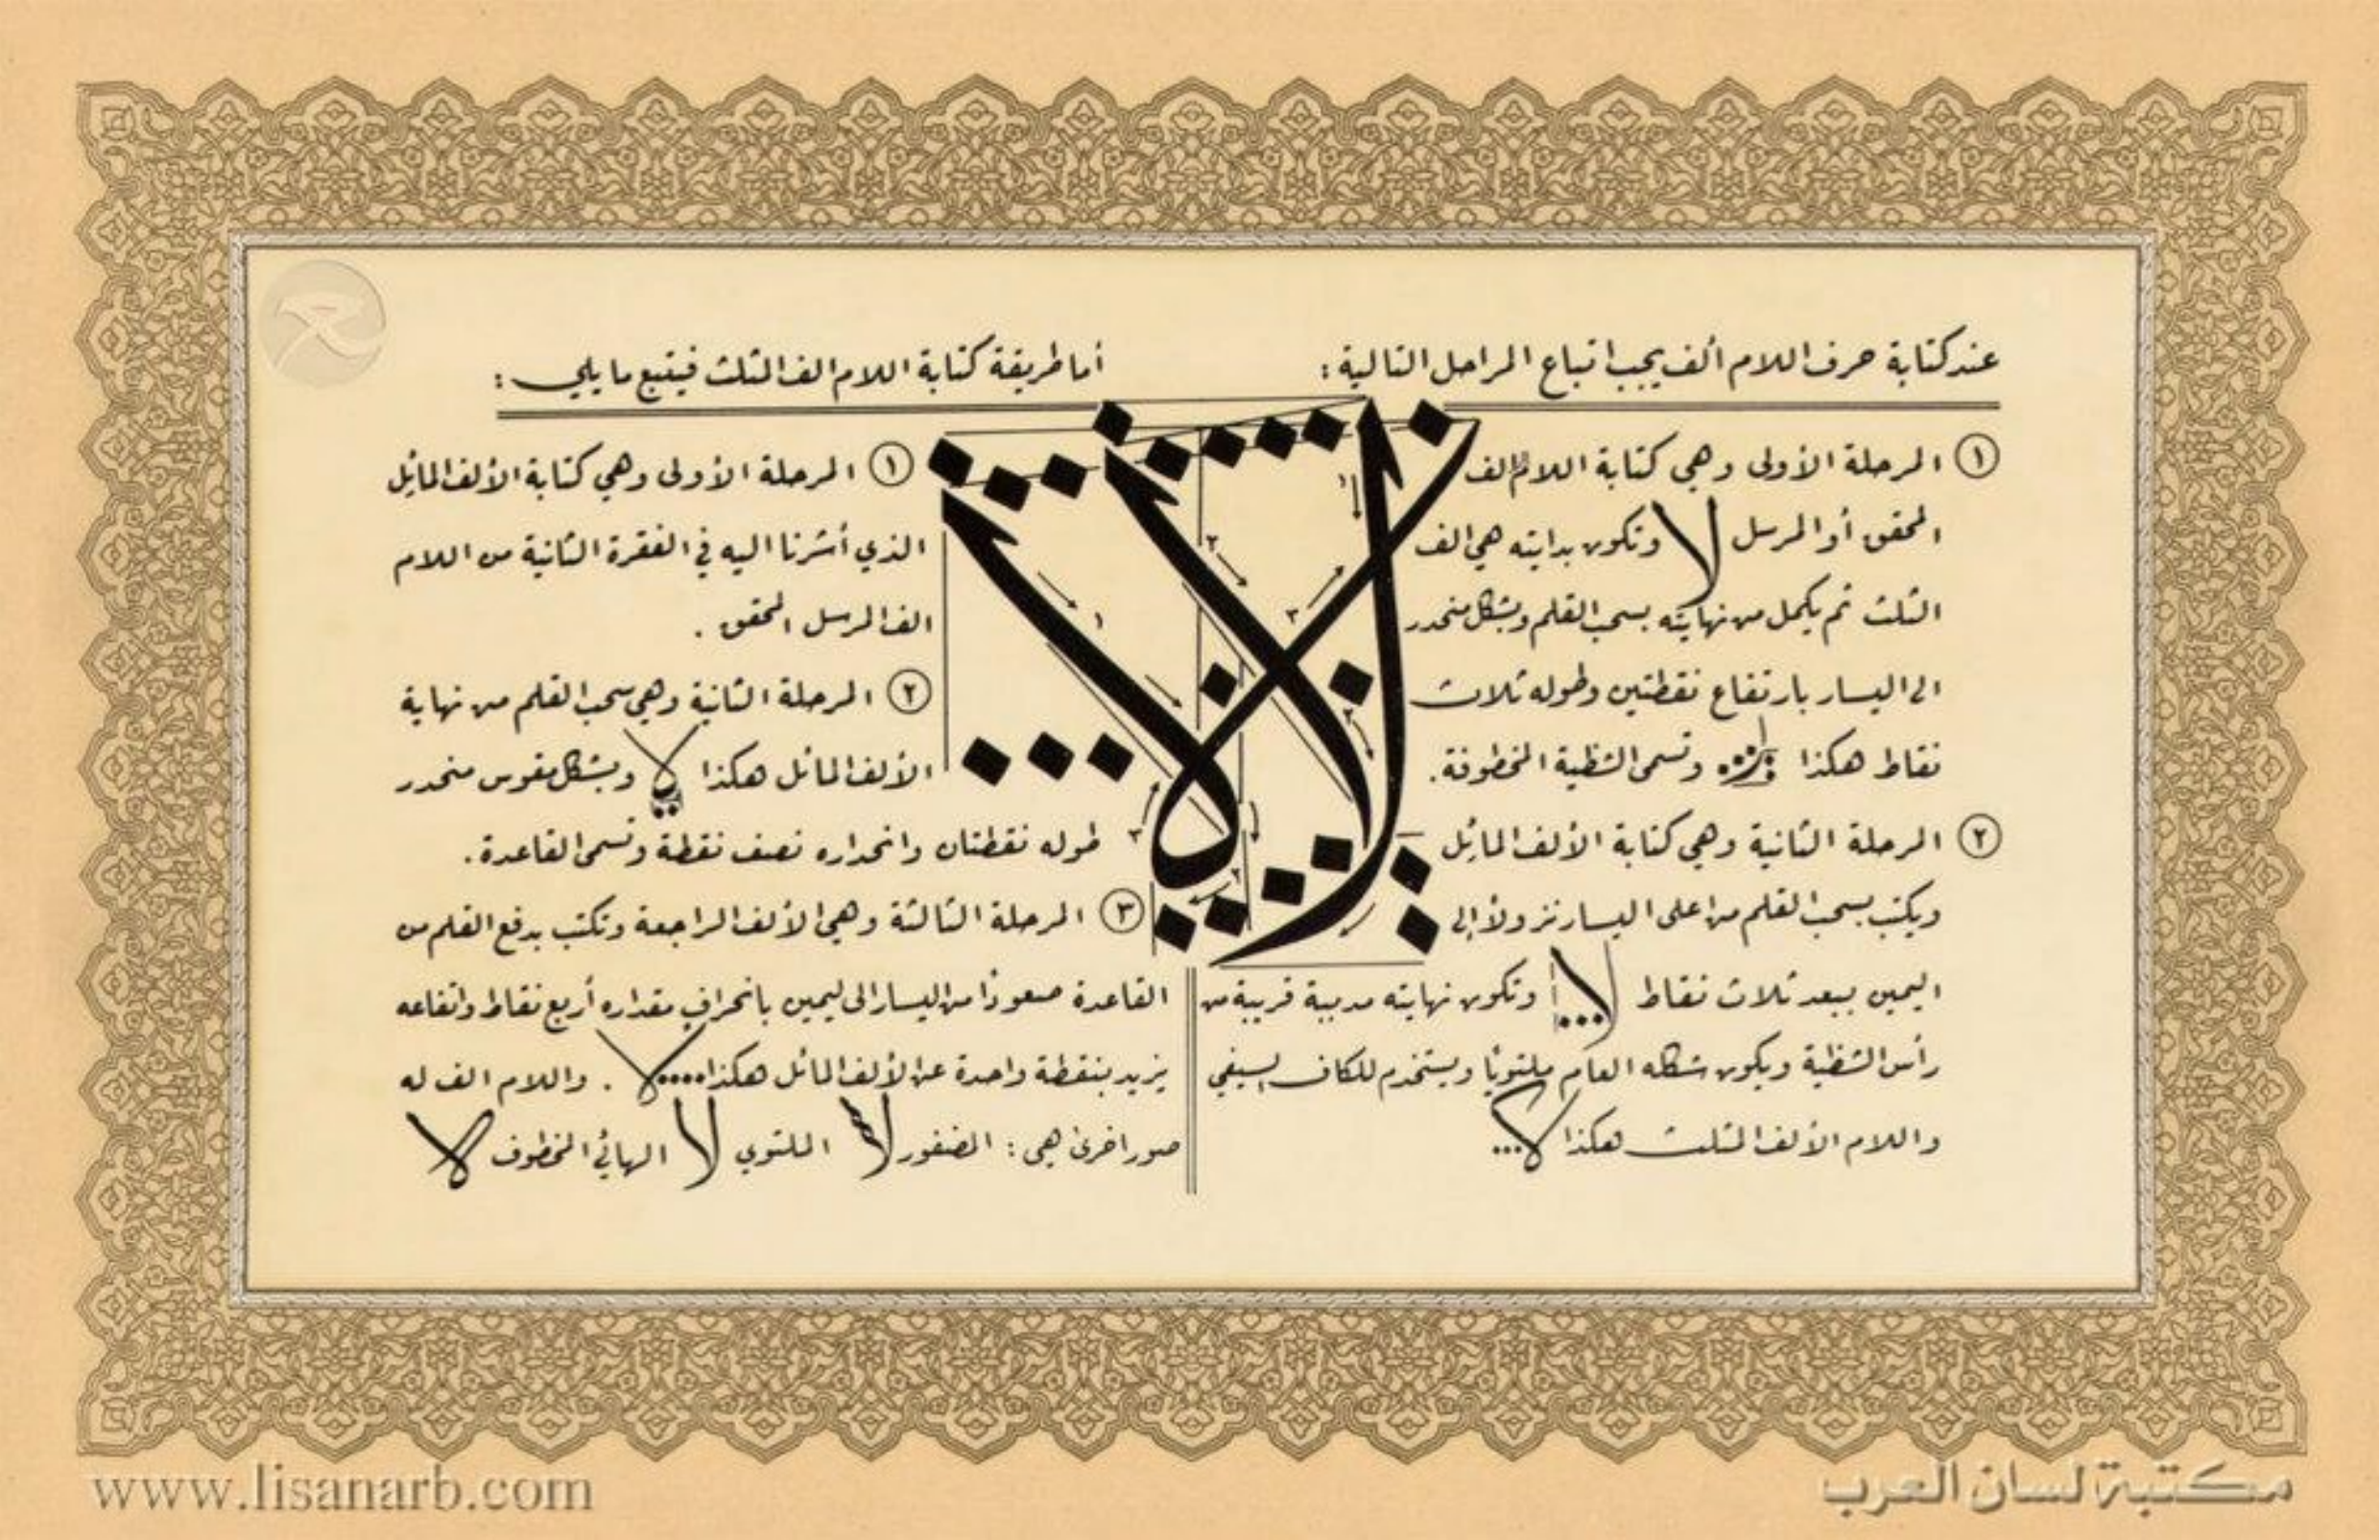 عند كتابة حرف اللام ألف يجب اتباع المراحل التالية :
١ المرحلة الأولى وهي كتابة اللام الف
المحقق أو المرسل لا وتكون بدايته هي الف
الثلث ثم يكمل من نهايته بسحب القلم وبشكل منحدر
الى اليسار بارتفاع نقطتين وطوله ثلاث
نقاط هكذا وتسمى الشظية المخطوفة .
٢ المرحلة الثانية وهي كتابة الألف المائل
ويكتب بسحب القلم من اعلى اليسار نزولاً إلى
اليمين ببعد ثلاث نقاط لا وتكون نهايته مدببة قريبة من
رأس الشظية ويكون شكله العام ملتوياً ويستخدم للكاف السيفي
واللام الألف المثلث هكذا لا
أما طريقة كتابة اللام الف الثلث فيتبع ما يلي :
١ المرحلة الأولى وهي كتابة الألف المائل
الذي أشرنا اليه في الفقرة الثانية من اللام
الف المرسل المحقق .
٢ المرحلة الثانية وهي سحب القلم من نهاية
الألف المائل هكذا لا وبشكل مقوس منحدر
طوله نقطتان وانحداره نصف نقطة وتسمى القاعدة .
٣ المرحلة الثالثة وهي الألف الراجعة وتكتب بدفع القلم من
القاعدة صعوداً من اليسار الى ليمين بانحراف مقداره أربع نقاط واتفاعه
يزيد بنقطة واحدة عن الألف المائل هكذا لا . واللام الف له
صور اخرى هي : المضفور لا الملتوي لا الهائي المخطوف لا
لا لا
١ ٢ ٣
١ ٢ ٣
www.lisanarb.com
مكتبة لسان العرب